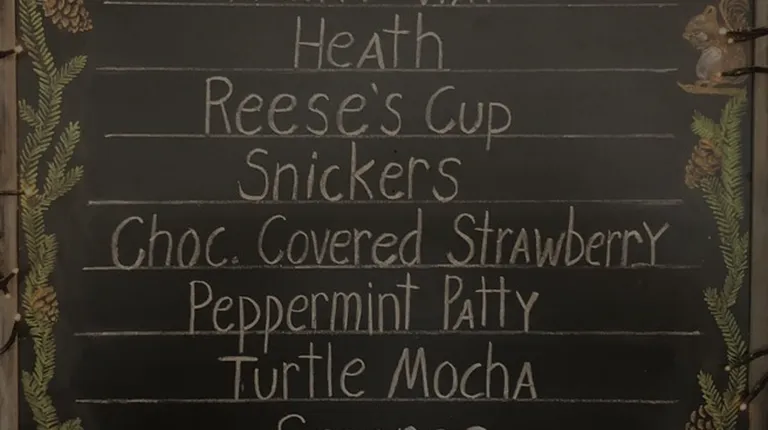 Heath
Reese's Cup
Snickers
Choc. Covered Strawberry
Peppermint Patty
Turtle Mocha